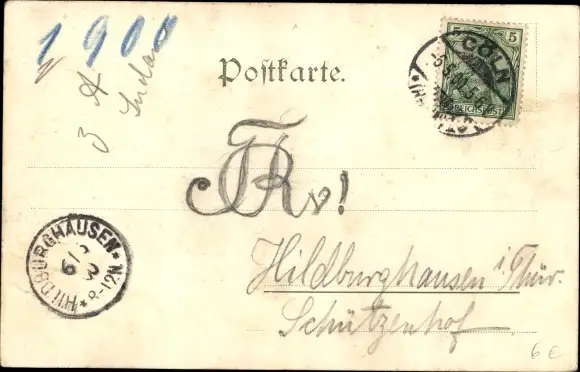 1900
3 A
Postkarte.
5
CÖLN
REICHSPOST
HILDBURGHAUSEN
8-12N.
Hildburghausen i/Thür.
Schützenhof
6 €